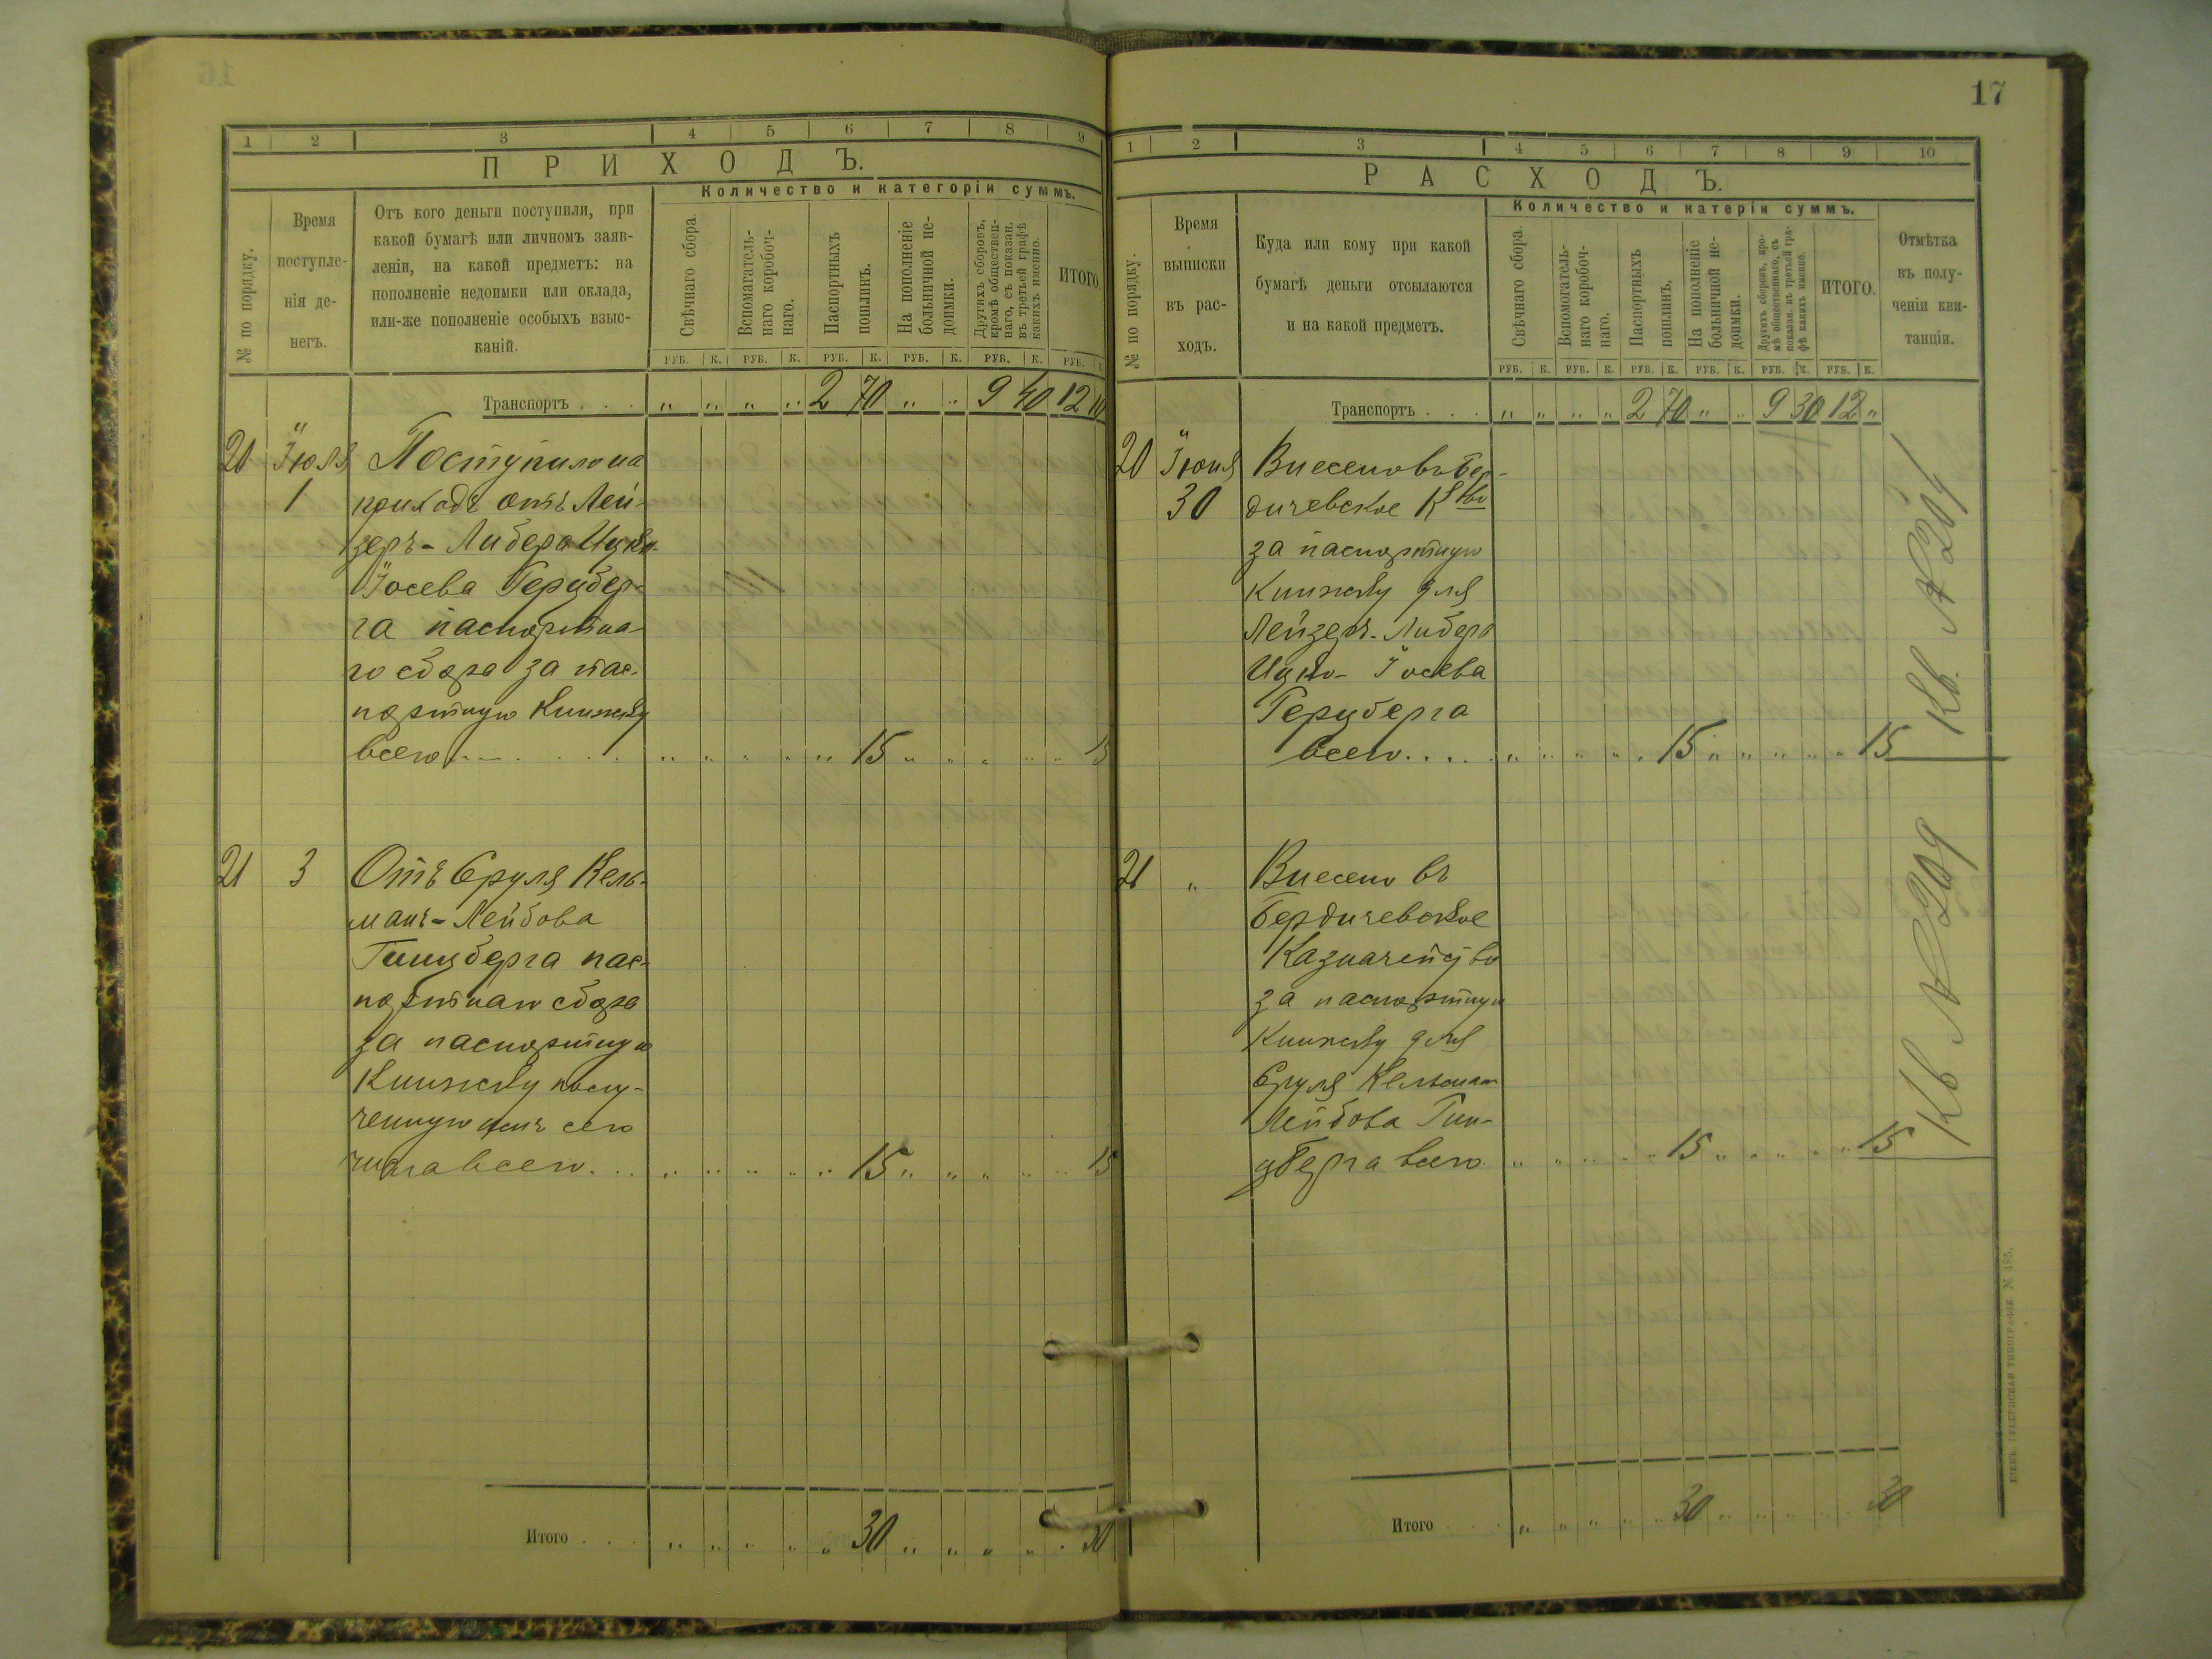 17
1 2 3 4 5 6 7 8 9
ПРИХОДЪ.
Количество и категоріи суммъ.
№ по порядку.
Время
поступле-
нія де-
негъ.
Отъ кого деньги поступили, при
какой бумагѣ или личномъ заяв-
леніи, на какой предметъ: на
пополненіе недоимки или оклада,
или-же пополненіе особыхъ взыс-
каній.
Свѣчнаго сбора.
Вспомагатель-
наго коробоч-
наго.
Паспортныхъ
пошлинъ.
На пополненіе
больничной не-
доимки.
Другихъ сборовъ,
кромѣ обществен-
наго, съ показан.
въ третьей графѣ
какихъ именно.
ИТОГО.
РУБ. К. РУБ. К. РУБ. К. РУБ. К. РУБ. К. РУБ.
Транспортъ . . . „ „ „ „ 2 70 „ „ 9 40 12 10
20 Іюля Поступило на
1 приходъ отъ Лей-
зеръ-Либера Ицко-
Іосева Герцбер-
га паспортна-
го сбора за пас-
портную книжку
всего . . . . „ „ „ „ „ 15 „ „ „ „ „ 15
21 3 Отъ Сруля Кель-
манъ-Лейбова
Гинцберга пас-
портнаго сбора
за паспортную
книжку полу-
ченную сего
числа всего . . . „ „ „ „ „ 15 „ „ „ „ „ 15
Итого . . . „ „ „ „ „ 30 „ „ „ „ „ 30
1 2 3 4 5 6 7 8 9 10
РАСХОДЪ.
Количество и катеріи суммъ.
№ по порядку.
Время
выписки
въ рас-
ходъ.
Куда или кому при какой
бумагѣ деньги отсылаются
и на какой предметъ.
Свѣчнаго сбора.
Вспомогатель-
наго коробоч-
наго.
Паспортныхъ
пошлинъ.
На пополненіе
больничной не-
доимки.
Другихъ сборовъ, кро-
мѣ общественнаго, съ
показан. въ третьей гра-
фѣ какихъ именно.
ИТОГО.
Отмѣтка
въ полу-
ченіи кви-
танціи.
РУБ. К. РУБ. К. РУБ. К. РУБ. К. РУБ. К. РУБ. К.
Транспортъ . . . „ „ „ „ 2 70 „ „ 9 30 12 „
20 Іюня Внесено въ Бер-
30 дичевское К-тво
за паспортную
книжку для
Лейзеръ-Либера
Ицко-Іосева
Герцберга
всего . . . . „ „ „ „ „ 15 „ „ „ „ „ 15
Кв. № 204
21 „ Внесено въ
Бердичевское
Казначейство
за паспортную
книжку для
Сруля Кельман
Лейбова Гин-
цберга всего „ „ „ „ „ 15 „ „ „ „ „ 15
Кв № 209
Итого . . . „ „ „ „ „ 30 „ „ „ „ „ 30
КІЕВЪ. ГУБЕРНСКАЯ ТИПОГРАФІЯ. № 185.